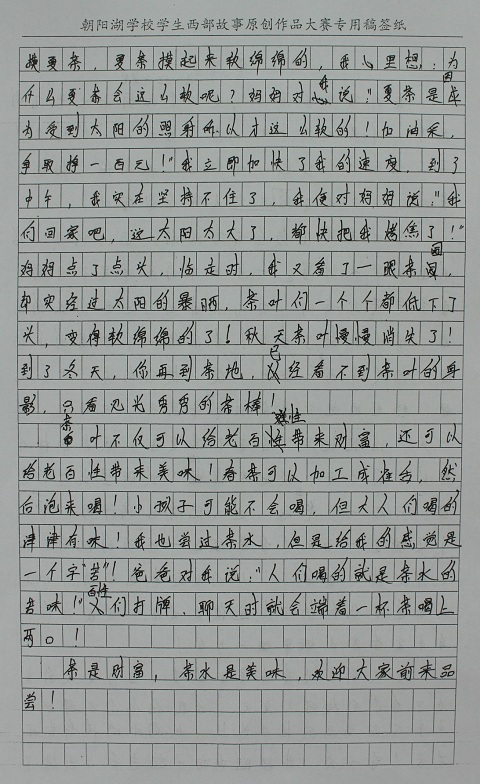 朝阳湖学校学生西部故事原创作品大赛专用稿签纸
摸夏茶，夏茶摸起来软绵绵的，我心里想：为
什么夏茶会这么软呢？妈妈对我说："夏茶是因
为受到太阳的照射所以才这么软的！加油采，
争取挣一百元！"我立即加快了我的速度，到了
中午，我实在坚持不住了，我便对妈妈说："我
们回家吧，这太阳太大了，都快把我烤焦了！"
妈妈点了点头，临走时，我又看了一眼茶园，
却实经过太阳的暴晒，茶叶们一个个都低下了
头，变得软绵绵的了！秋天茶叶慢慢消失了！
到了冬天，你再到茶地，已经看不到茶叶的身
影，只看见光秃秃的茶棒！
茶叶不仅可以给老百姓带来财富，还可以
给老百姓带来美味！春茶可以加工成 然
后泡来喝！小孩子可能不会喝，但大人们喝的
津津有味！我也尝过茶水，但是给我的感觉是
一个字"苦"！爸爸对我说："人们喝的就是茶水的
苦味！"百姓们打牌、聊天时就会端着一杯茶喝上
两口！
茶是财富，茶水是美味，欢迎大家前来品
尝！